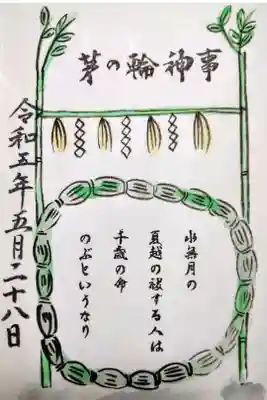 茅の輪神事
水無月の
夏越の祓する人は
千歳の命
のぶというなり
令和五年五月二十八日